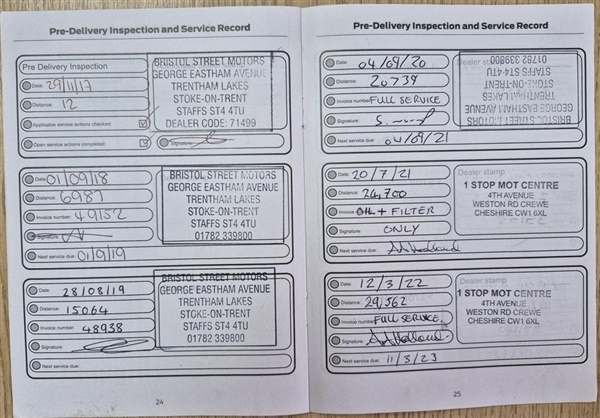 Pre-Delivery Inspection and Service Record
Pre Delivery Inspection
Date: 29/11/17
Distance: 12
Applicable service actions checked:
Open service actions completed:
Signature:
BRISTOL STREET MOTORS
GEORGE EASTHAM AVENUE
TRENTHAM LAKES
STOKE-ON-TRENT
STAFFS ST4 4TU
DEALER CODE: 71499
Date: 01/09/18
Distance: 6987
Invoice number: 49152
Signature:
Next service due: 01/9/19
BRISTOL STREET MOTORS
GEORGE EASTHAM AVENUE
TRENTHAM LAKES
STOKE-ON-TRENT
STAFFS ST4 4TU
01782 339800
Date: 28/08/19
Distance: 15064
Invoice number: 48938
Signature:
Next service due:
BRISTOL STREET MOTORS
GEORGE EASTHAM AVENUE
TRENTHAM LAKES
STOKE-ON-TRENT
STAFFS ST4 4TU
01782 339800
24
Pre-Delivery Inspection and Service Record
Date: 04/09/20
Distance: 20739
Invoice number: FULL SERVICE
Signature:
Next service due: 04/09/21
Dealer stamp
BRISTOL STREET MOTORS
GEORGE EASTHAM AVENUE
TRENTHAM LAKES
STOKE-ON-TRENT
STAFFS ST4 4TU
01782 339800
Date: 20/7/21
Distance: 24,700
Invoice OIL + FILTER
Signature: ONLY
Next service due:
Dealer stamp
1 STOP MOT CENTRE
4TH AVENUE
WESTON RD CREWE
CHESHIRE CW1 6XL
Date: 12/3/22
Distance: 29,562
Invoice number: FULL SERVICE.
Signature:
Next service due: 11/3/23
Dealer stamp
1 STOP MOT CENTRE
4TH AVENUE
WESTON RD CREWE
CHESHIRE CW1 6XL
25